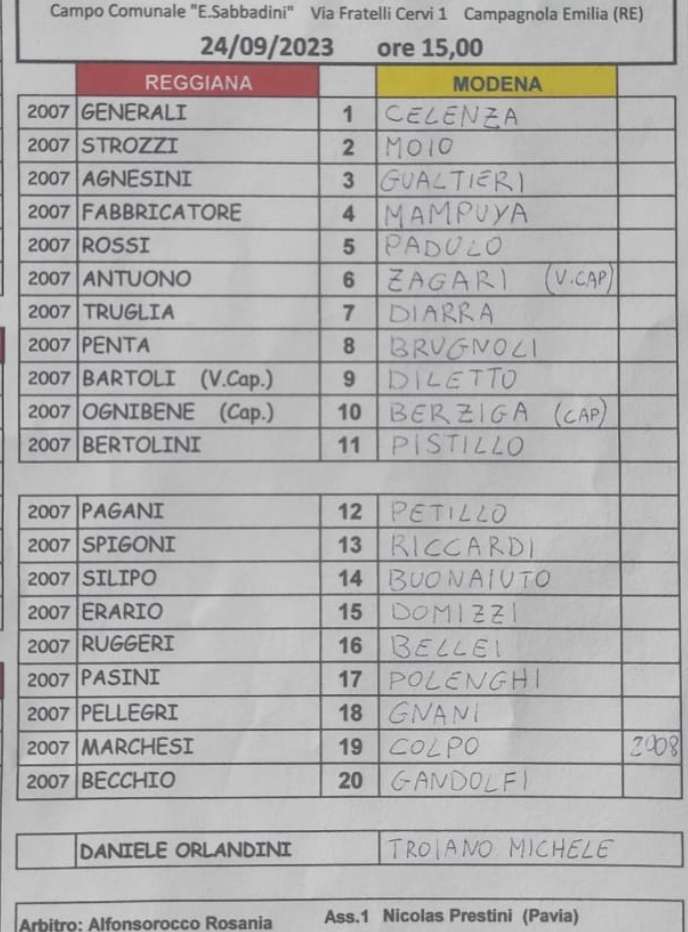 Campo Comunale "E.Sabbadini" Via Fratelli Cervi 1 Campagnola Emilia (RE)
24/09/2023 ore 15,00
REGGIANA MODENA
2007 GENERALI 1 CELENZA
2007 STROZZI 2 MOIO
2007 AGNESINI 3 GUALTIERI
2007 FABBRICATORE 4 MAMPUYA
2007 ROSSI 5 PADULO
2007 ANTUONO 6 ZAGARI (V.CAP)
2007 TRUGLIA 7 DIARRA
2007 PENTA 8 BRUGNOLI
2007 BARTOLI (V.Cap.) 9 DILETTO
2007 OGNIBENE (Cap.) 10 BERZIGA (CAP)
2007 BERTOLINI 11 PISTILLO
2007 PAGANI 12 PETILLO
2007 SPIGONI 13 RICCARDI
2007 SILIPO 14 BUONAIUTO
2007 ERARIO 15 DOMIZZI
2007 RUGGERI 16 BELLEI
2007 PASINI 17 POLENGHI
2007 PELLEGRI 18 GNANI
2007 MARCHESI 19 COLPO 2008
2007 BECCHIO 20 GANDOLFI
DANIELE ORLANDINI TROIANO MICHELE
Arbitro: Alfonsorocco Rosania Ass.1 Nicolas Prestini (Pavia)